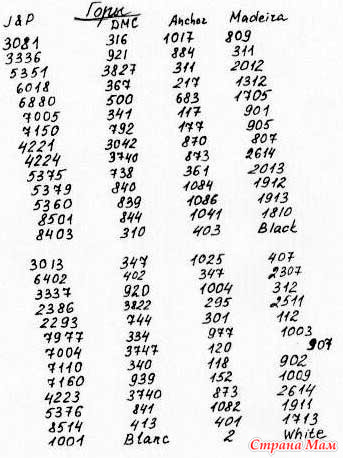 Горы
J&P DMC Anchor Madeira
3081 316 1017 809
3336 921 884 311
5351 3827 311 2012
6018 367 217 1312
6880 500 683 1705
7005 341 117 901
7150 792 177 905
4221 3042 870 807
4224 3740 873 2614
5375 738 361 2013
5379 840 1084 1912
5360 839 1086 1913
8501 844 1041 1810
8403 310 403 Black
3013 347 1025 407
6402 402 347 2307
3337 920 1004 312
2386 3822 295 2511
2293 744 301 112
7977 334 977 1003
7004 3747 120 907
7110 340 118 902
7160 939 152 1009
4223 3740 873 2614
5376 841 1082 1911
8514 413 401 1713
1001 Blanc 2 White
Страна Мам